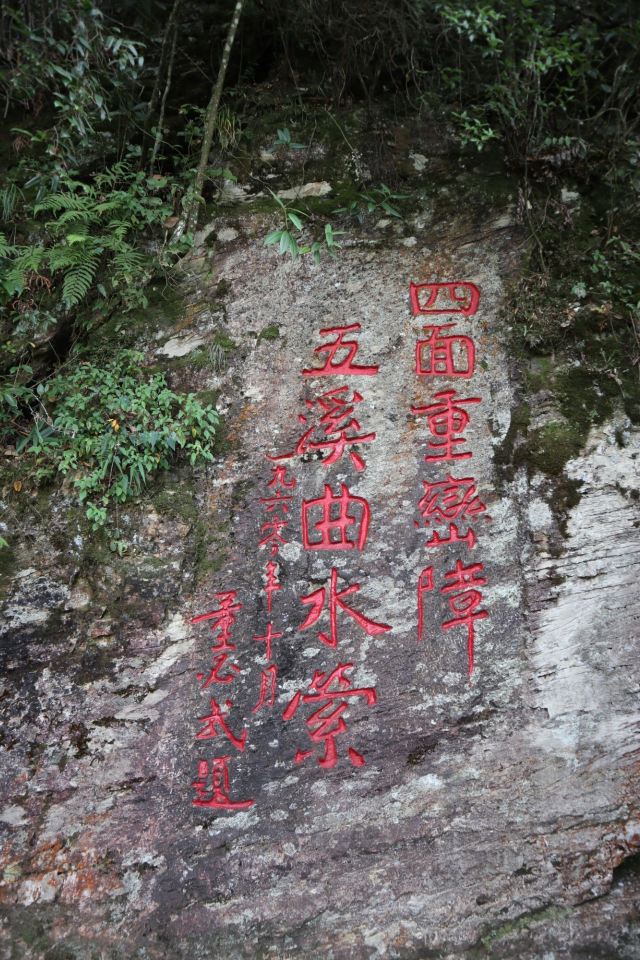 四面重峦障
五溪曲水萦
一九六零年十月
董必武题